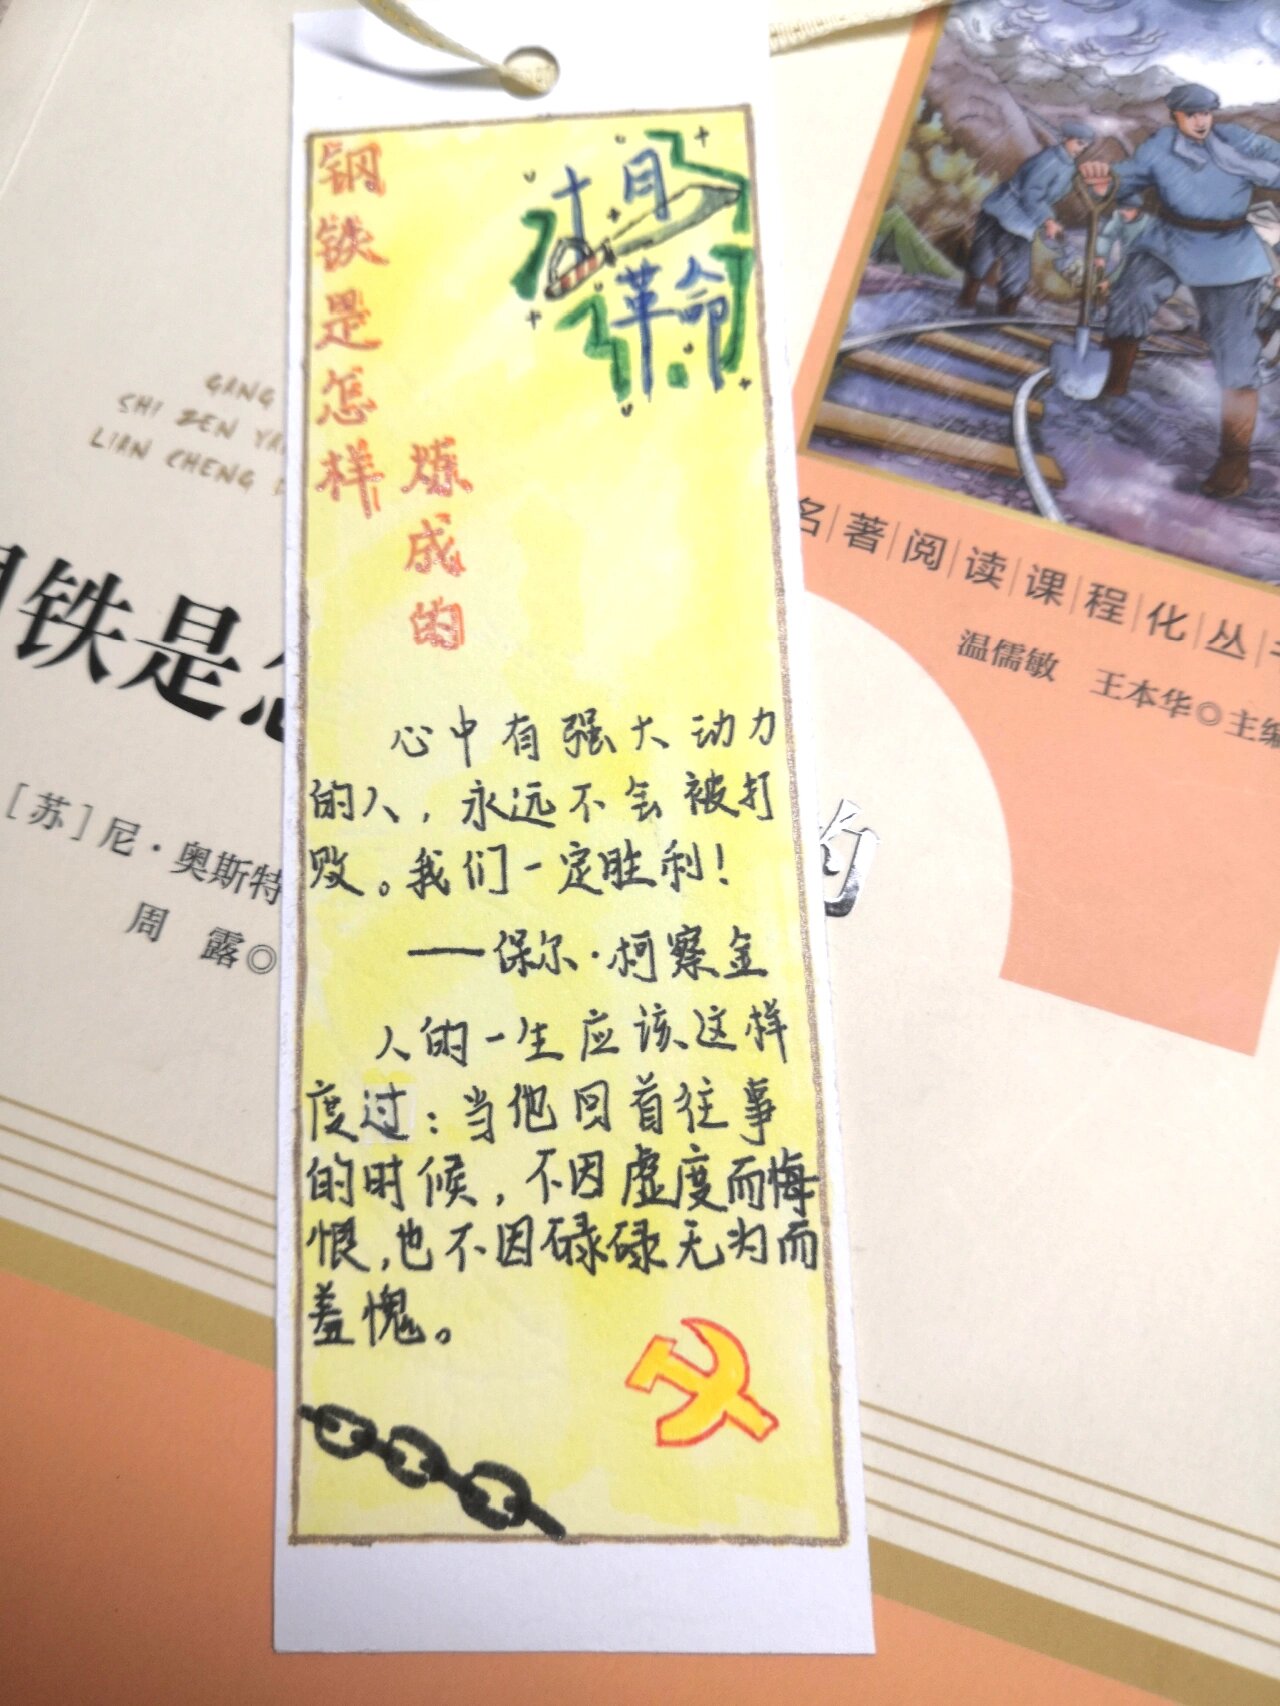 钢铁是怎样
炼成的
十月
革命
心中有强大动力
的人，永远不会被打
败。我们一定胜利！
——保尔·柯察金
人的一生应该这样
度过：当他回首往事
的时候，不因虚度而悔
恨，也不因碌碌无为而
羞愧。
GANG
SHI ZEN YA
LIAN CHENG
铁是怎
[苏]尼·奥斯特
周 露◎
名著阅读课程化丛书
温儒敏 王本华◎主编
的